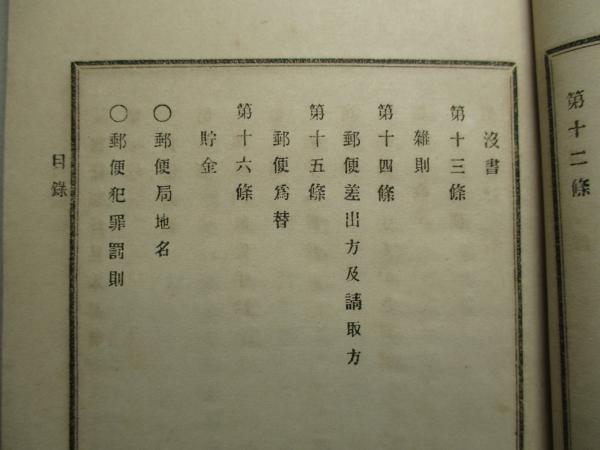 第十二條
沒書
第十三條
雜則
第十四條
郵便差出方及請取方
第十五條
郵便爲替
第十六條
貯金
〇郵便局地名
〇郵便犯罪罰則
目錄